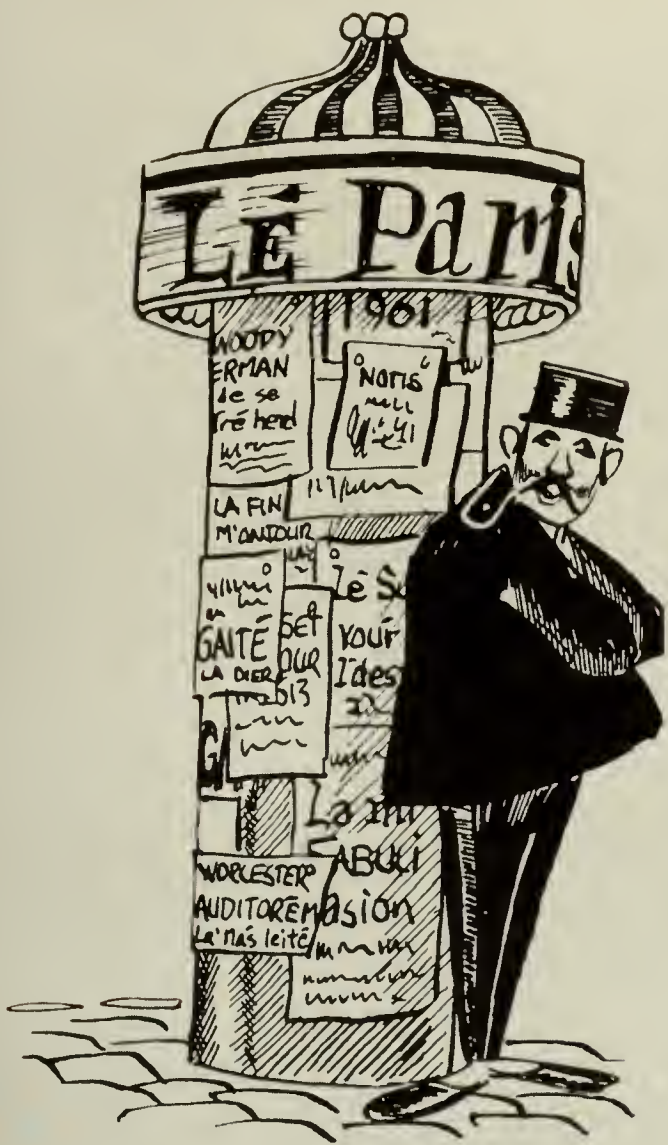 LÉ Paris
1961
WOODY
ERMAN
de se
Tré hend
NOTIS
LA FIN
M'ANTOUR
GAITÉ
LA DIER
SET
OUR
613
Lé S
YOUR
Ides
La mi
ABULI
asion
WORCESTER
AUDITOREM
La' mas leité